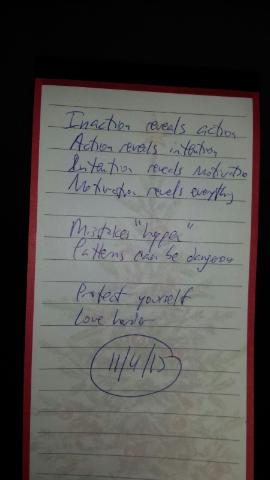 Inaction reveals action
Action reveals intention
Intention reveals motivation
Motivation reveals everything
Mistakes "happen"
Patterns can be dangerous
Protect yourself
Love harder
11/4/15